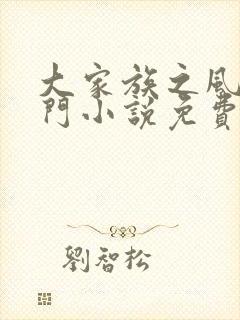 大家族之風
門小說免費
劉智松